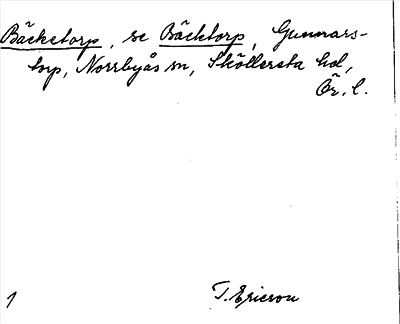 Bäcketorp, se Bäcktorp, Gunnars-
torp, Norrbyås sn, Sköllersta hd,
Ör. l.
1 T. Ericson